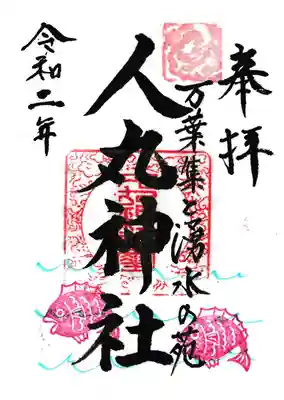 奉拝
万葉集と湧水の苑
人丸神社
令和二年